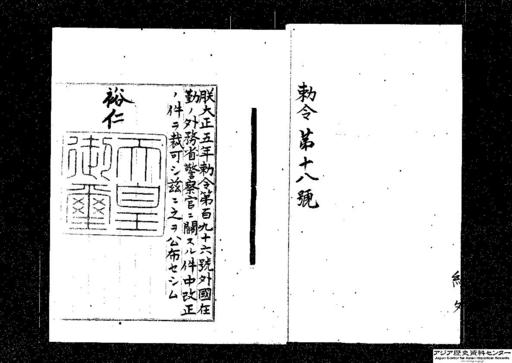 勅令第十八號
朕大正五年勅令第百九十六號外國在
勤ノ外務省警察官ニ關スル件中改正
ノ件ヲ裁可シ茲ニ之ヲ公布セシム
裕仁
天皇
御璽
アジア歴史資料センター
Japan Center for Asian Historical Records